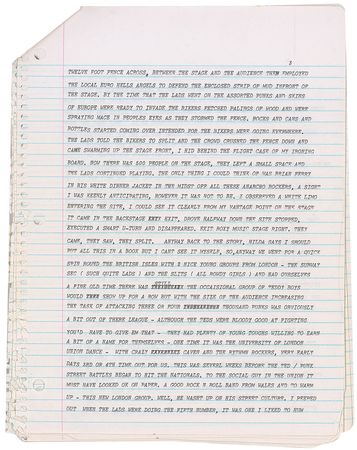 3
TWELVE FOOT FENCE ACROSS, BETWEEN THE STAGE AND THE AUDIENCE THEN EMPLOYED
THE LOCAL EURO HELLS ANGELS TO DEFEND THE ENCLOSED STRIP OF MUD INFRONT OF
THE STAGE. BY THE TIME THAT THE LADS WENT ON THE ASSORTED PUNKS AND SKINS
OF EUROPE WERE READY TO INVADE THE BIKERS FETCHED PALINGS OF WOOD AND WERE
SPRAYING MACE IN PEOPLES EYES AS THEY STORMED THE FENCE, ROCKS AND CANS AND
BOTTLES STARTED COMING OVER INTENDED FOR THE BIKERS WERE GOING EVERYWHERE,
THE LADS TOLD THE BIKERS TO SPLIT AND THE CROWD CRUSHED THE FENCE DOWN AND
CAME SWARMING UP THE STAGE FRONT, I HID BEHIND THE FLIGHT CASE OF MY IRONING
BOARD, NOW THERE WAS 500 PEOPLE ON THE STAGE, THEY LEFT A SMALL SPACE AND
THE LADS CONTINUED PLAYING, THE ONLY THING I COULD THINK OF WAS BRIAN FERRY
IN HIS WHITE DINNER JACKET IN THE MIDST OFF ALL THESE ANARCHO ROCKERS, A SIGHT
I WAS KEENLY ANTICIPATING, HOWEVER IT WAS NOT TO BE, I OBSERVED A WHITE LIMO
ENTERING THE SITE, I COULD SEE IT CLEARLY FROM MY VANTAGE POINT ON THE STAGE
IT CAME IN THE BACKSTAGE EXIT, DROVE HALFWAY DOWN THE SITE STOPPED,
EXECUTED A SMART U-TURN AND DISAPPEARED. EXIT ROXI MUSIC STAGE RIGHT. THEY
CAME, THEY SAW, THEY SPLIT. ANYWAY BACK TO THE STORY, HILDA SAYS I SHOULD
PUT ALL THIS IN A BOOK BUT I CANT SEE IT MYSELF, SO, ANYWAY WE WENT FOR A QUICK
SPIN ROUND THE BRITISH ISLES WITH 2 NICE YOUNG GROUPS FROM LONDON - THE SUBWAY
SEC ( SUCH QUITE LADS ) AND THE SLITS ( ALL ROWDY GIRLS ) AND HAD OURSELVES
STILL
A FINE OLD TIME THERE WAS THE OCCAISIONAL GROUP OF TEDDY BOYS
WOULD SHOW UP FOR A ROW BUT WITH THE SIZE OF THE AUDIENCE INCREASING
THE TASK OF ATTACKING THREE OR FOUR THOUSAND PUNKS WAS OBVIOUSLY
A BIT OUT OF THERE LEAGUE - ALTHOUGH THE TEDS WERE BLOODY GOOD AT FIGHTING
YOU'D HAVE TO GIVE EM THAT - THEY HAD PLENTY OF YOUNG TOUGHS WILLING TO EARN
A BIT OF A NAME FOR THEMSELVES - ONE TIME IT WAS THE UNIVERSITY OF LONDON
UNION DANCE - WITH CRAZY CAVEN AND THE RYTHMN ROCKERS, VERY EARLY
DAYS 3RD OR 4TH TIME OUT FOR US. THIS WAS SEVERL WEEKS BEFORE THE TED / PUNK
STREET BATTLES BEGAN TO HIT THE NATIONALS, TO THE SOCIAL SUT IN THE UNION IT
MUST HAVE LOOKED OK ON PAPER, A GOOD ROCK N ROLL BAND FROM WALES AND TO WARM
UP - THIS NEW LONDON GROUP. WELL, HE WASNT UP ON HIS STREET CULTURE, I PEEPED
OUT WHEN THE LADS WERE DOING THE FIFTH NUMBER, IT WAS ONE I LIKED TO HUM